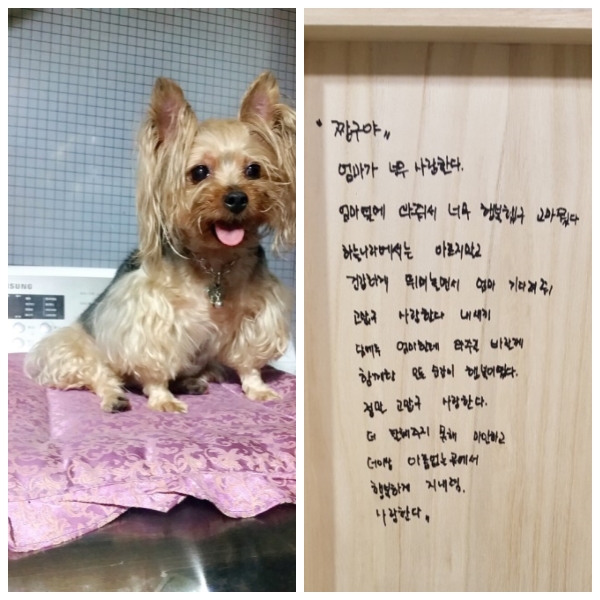 SUNG
"짱구야"
엄마가 너무 사랑한다.
엄마옆에 와줘서 너무 행복했구 고마웠다
하늘나라에서는 아프지말고
건강하게 뛰어놀면서 엄마 기다려줘!
고맙구 사랑한다 내새끼
담에두 엄마한테 와주길 바란게
함께한 모든 순간이 행복이었다.
정말 고맙구 사랑한다.
더 잘해주지 못해 미안하고
더이상 아픔없는곳에서
행복하게 지내렴.
사랑한다"